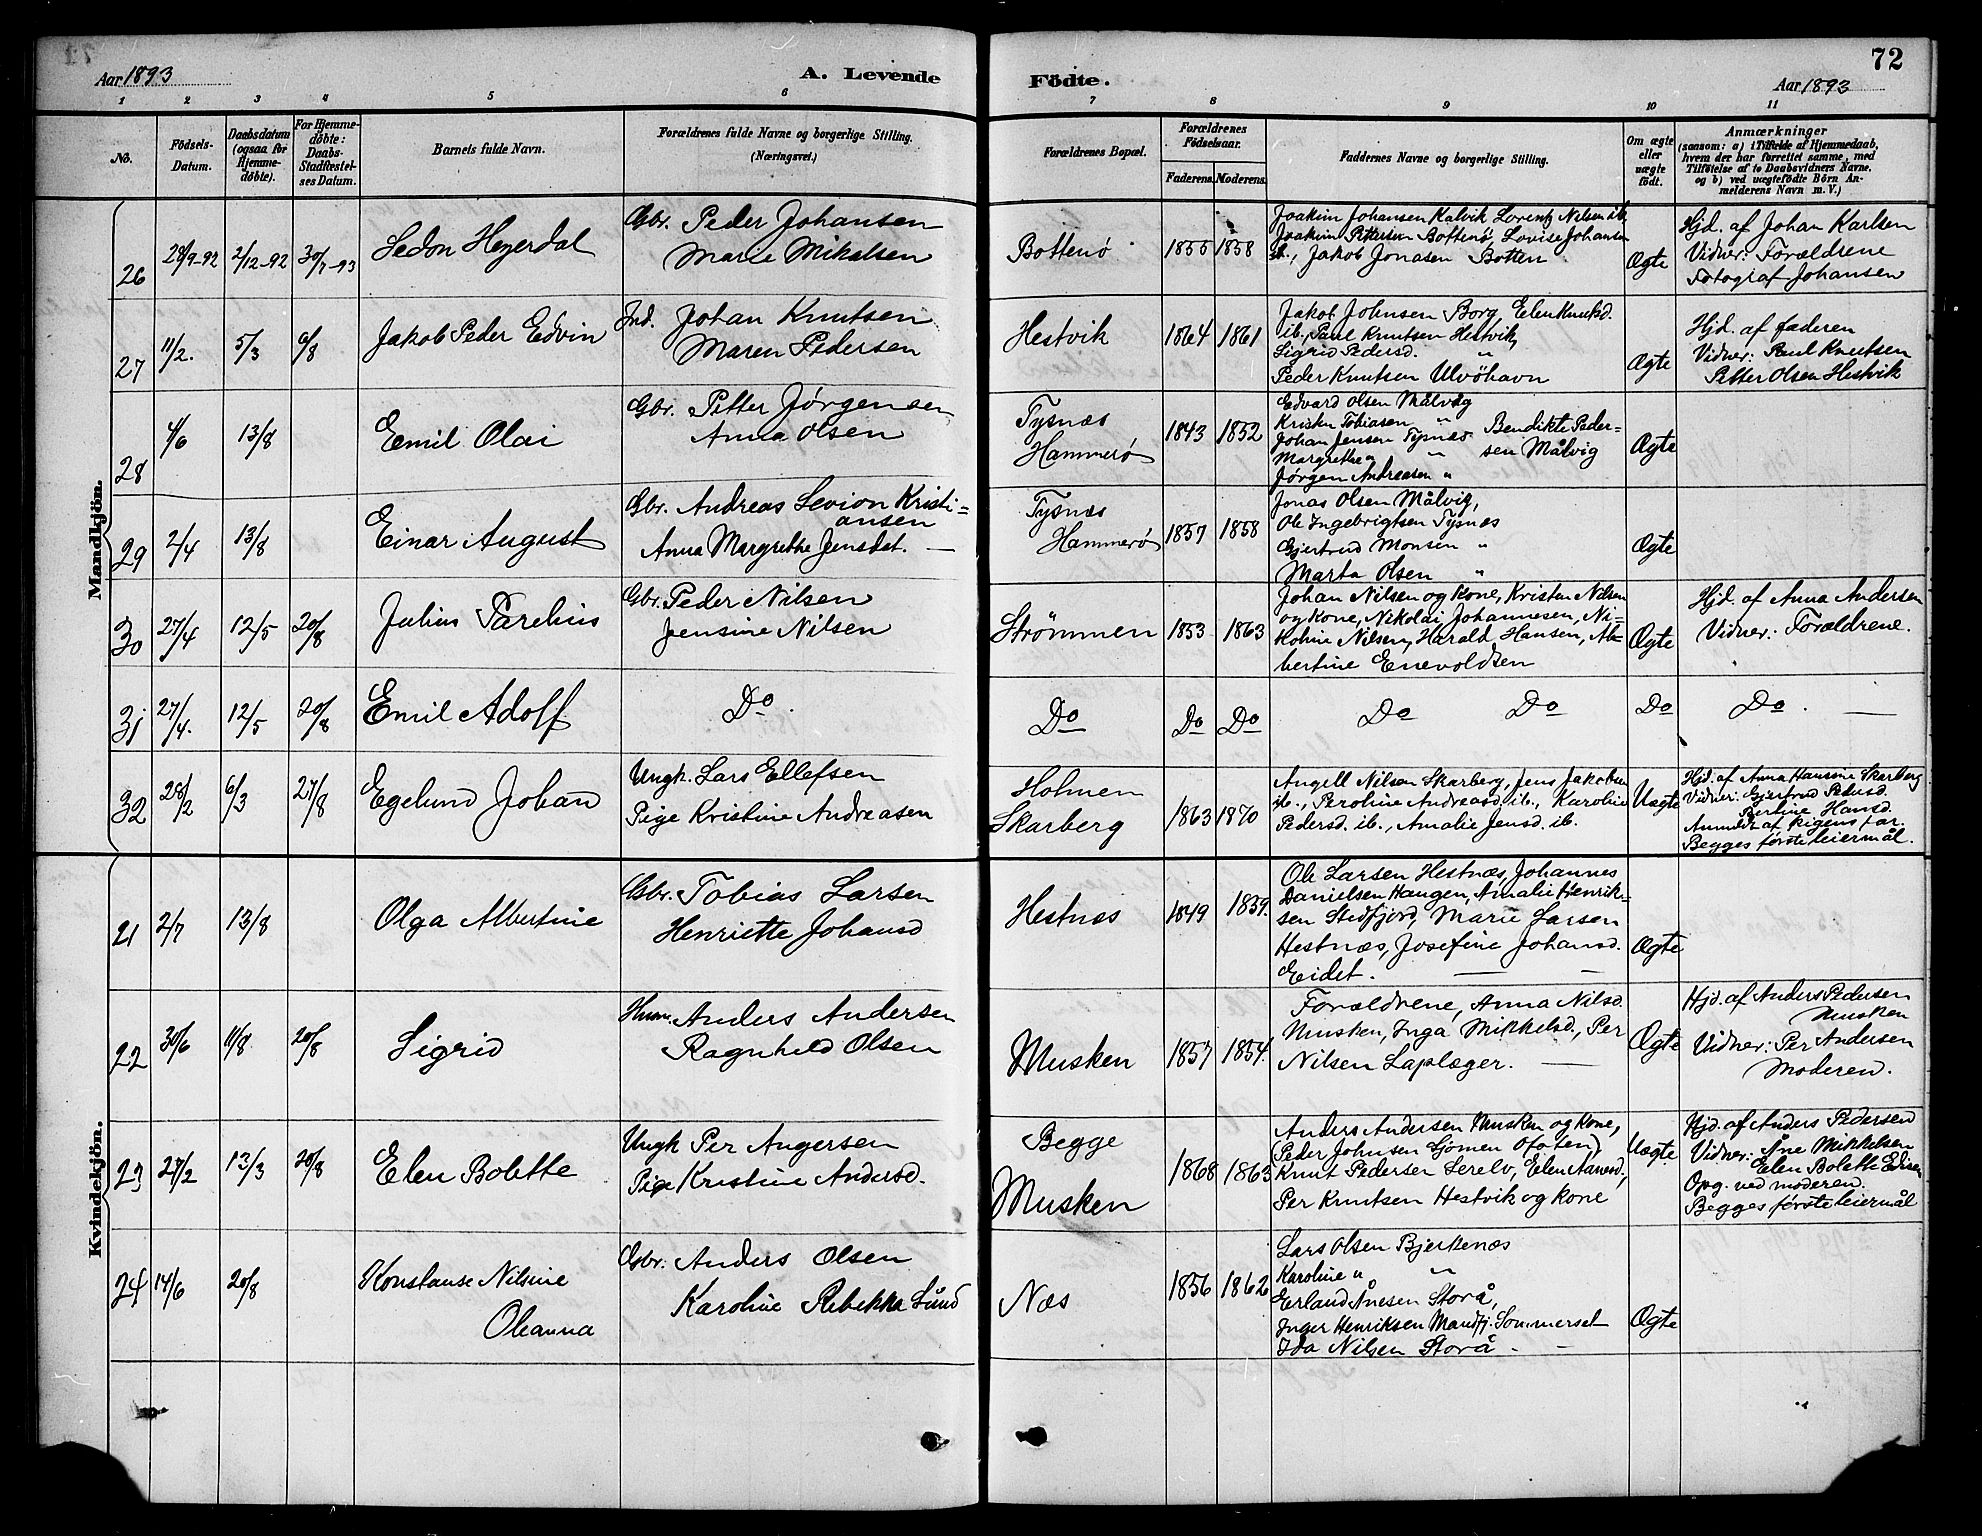 72
Aar 1893
A. Levende
Födte.
Aar 1893
1 2 3 4 5 6 7 8 9 10 11
No.
Födsels-
Datum.
Daabsdatum
(ogsaa for
Hjemme-
døbte).
For Hjemme-
døbte:
Daabs-
Stadfæstel-
ses Datum.
Barnets fulde Navn.
Forældrenes fulde Navne og borgerlige Stilling.
(Næringsvei.)
Forældrenes Bopæl.
Forældrenes
Födselsaar.
Faderens. Moderens.
Faddernes Navne og borgerlige Stilling.
Om ægte
eller
uægte
födt.
Anmærkninger
(saasom: a) i Tilfælde af Hjemmedaab,
hvem der har forrettet samme, med
Tilföielse af to Daabsvidners Navne,
og b) ved uægtefödte Börn An-
melderens Navn m. V.)
Mandkjön.
26 28/9-92 2/12-92 30/7-93 Sedon Heyerdal
Gbr. Peder Johansen
Marie Mikalsen
Bottenö 1855 1858
Joakim Johansen Kalvik Lorentz Nilsen ib.
Joakim Pettersen Bottenö, Lovise Johansen
ib., Jakob Jonasen Botten
Ægte
Hjd. af Johan Karlsen
Vidner: Forældrene
Fotograf Johansen
27 11/2. 5/3 6/8 Jakob Peder Edvin
Ind. Johan Knutsen
Maren Pedersen
Hestvik 1864 1861
Jakob Johnsen Borg, Elen Knutsd.
ib., Paul Knutsen Hestvik,
Sigrid Pedersd. "
Peder Knutsen Ulvöhavn
Ægte
Hjd. af faderen
Vidner: Paul Knutsen
Petter Olsen Hestvik
28 4/6 13/8 Emil Olai
Gbr. Petter Jørgensen
Anna Olsen
Tysnæs
Hammerö
1843 1852
Edvard Olsen Målvig
Kristen Tobiasen "
Johan Jensen Tysnæs Bendikte Peder=
Margrethe " " sen Målvig
Jørgen Andreasen "
Ægte
29 2/4 13/8 Einar August
Gbr. Andreas Levion Kristi=
ansen
Anna Margrethe Jensdat. —
Tysnæs
Hammerö
1857 1858
Jonas Olsen Målvig,
Ole Ingebrigtsen Tysnæs
Gjertrud Monsen "
Marta Olsen "
Ægte
30 27/4 12/5 20/8 Julius Parelius
Gbr. Peder Nilsen
Jensine Nilsen
Strömmen 1853 1863
Johan Nilsen og Kone, Kristen Nilsen
og Kone, Nikolai Johannesen, Ni=
koline Nilsen, Harald Hansen, Al=
bertine Enevoldsen
Ægte
Hjd. af Anna Andersen
Vidner: Forældrene.
31 27/4. 12/5 20/8 Emil Adolf
Do.
Do Do Do Do Do Do Do. —
32 28/2 6/3 27/8 Egelund Johan
Ungk. Lars Ellefsen
Pige Kristine Andreasen
Holmen
Skarberg
1863 1870
Angell Nilsen Skarberg, Jens Jakobsen
ib., Peroline Andreasd. ib., Karoline
Pedersd. ib., Amalie Jensd. ib.
Uægte
Hjd. af Anna Hansine Skarberg
Vidner: Gjertrud Pedersd.
Bertine Hansd.
Anmeldt af pigens far.
Begges første leiermål.
Kvindekjön.
21 2/7 13/8 Olga Albertine
Gbr. Tobias Larsen
Henriette Johansd
Hestnæs 1849 1839.
Ole Larsen Hestnæs, Johannes
Danielsen Haugen, Amalie Henrik=
sen Stedfjord, Marie Larsen
Hestnæs, Josefine Johansd.
Eidet. — —
Ægte
22 30/6 11/8 20/8 Sigrid
Husm. Anders Andersen
Ragnhild Olsen
Musken 1857 1854.
Forældrene, Anna Nilsd.
Musken, Inga Mikkelsd., Per
Nilsen Laplæger. —
Ægte
Hjd. af Anders Pedersen
Musken
Vidner: Per Andersen
Moderen.
23 27/2 13/3 20/8 Elen Bolette
Ungk Per Angersen
Pige Kristine Andersd.
Begge
Musken
1868 1863
Anders Andersen Musken og kone,
(Peder Johnsen Sjömen Ofoten)
Knut Pedersen Serelv, Elen Aanesd,
Per Knutsen Hestvik og Kone
Uægte
Hjd. af Anders Pedersen
Vidner: Åne Mikkelsen
Elen Bolette
Opg. ved moderen.
Begges første leiermål
24 14/6 20/8 Konstanse Nilsine
Oleanna
Gbr. Anders Olsen
Karoline Rebekka Lund
Næs 1856 1862
Lars Olsen Bjerkenæs
Karoline " "
Erland Ånesen Storå,
Inger Henriksen Mandfj. Sommerset
Ida Nilsen Storå. —
Ægte